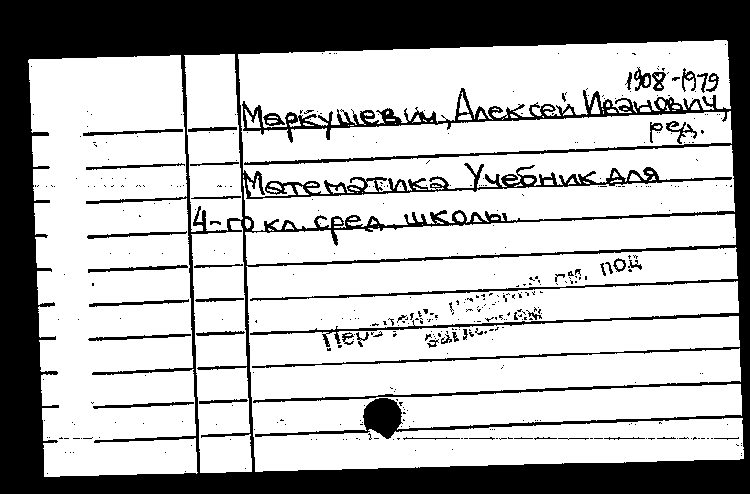 1908-1979
Маркушевич, Алексей Иванович,
ред.
Математика Учебник для
4-го кл. сред. школы
Перечень изданий см. под
заглавием